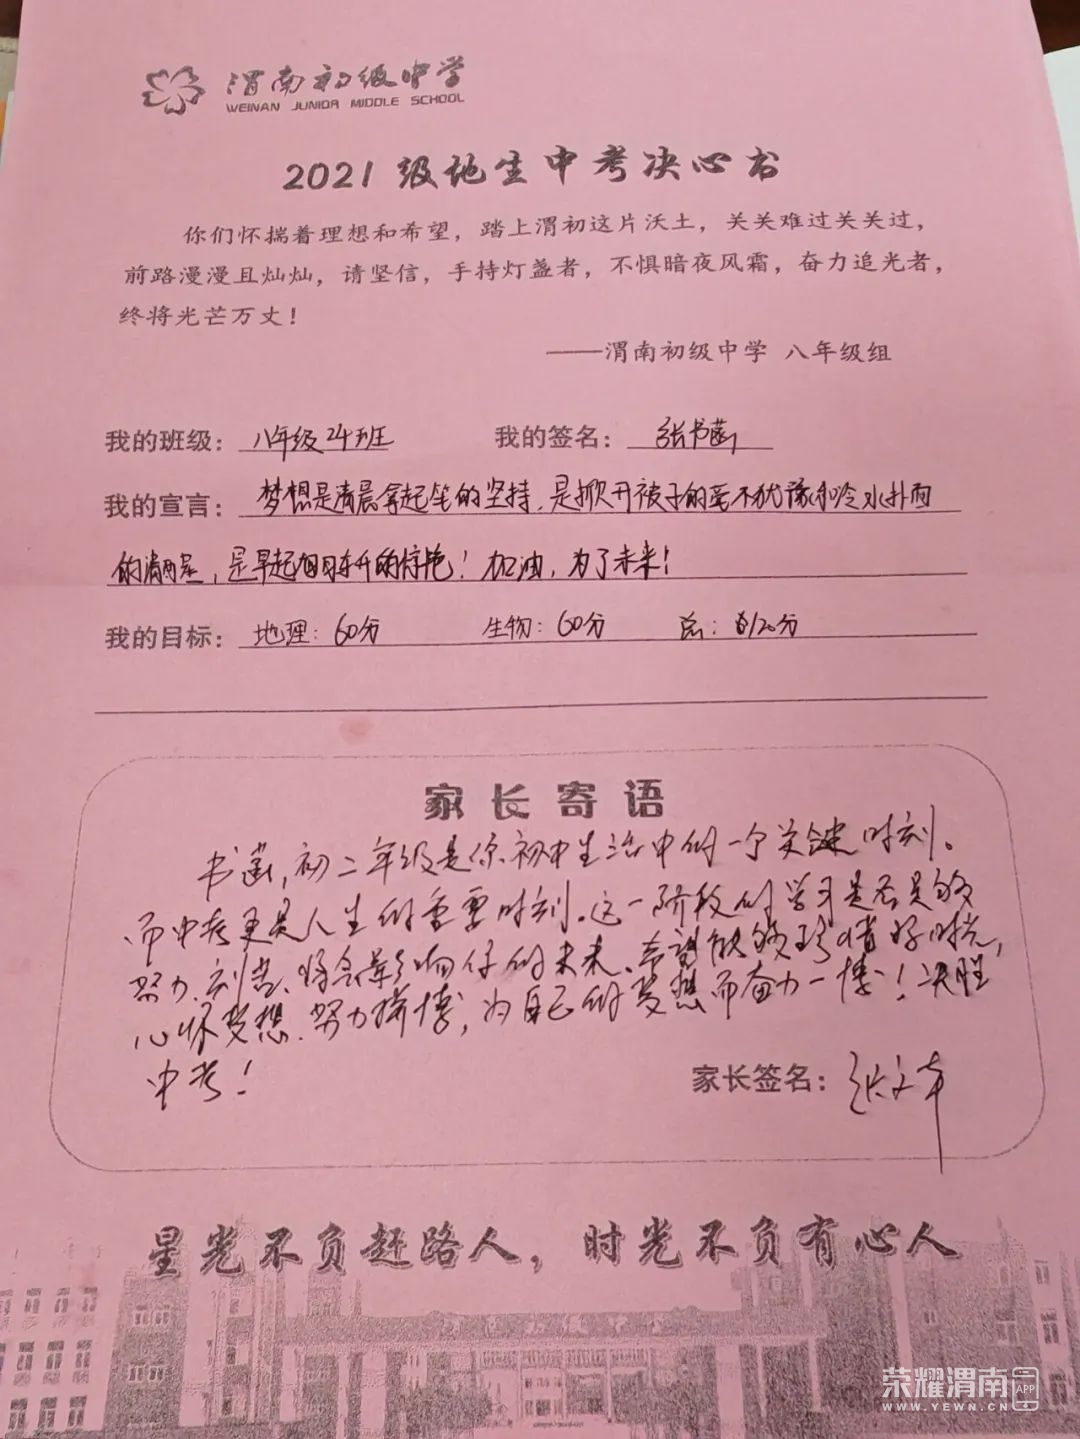 渭南初级中学
WEINAN JUNIOR MIDDLE SCHOOL
2021 级地生中考决心书
你们怀揣着理想和希望，踏上渭初这片沃土，关关难过关关过，
前路漫漫且灿灿，请坚信，手持灯盏者，不惧暗夜风霜，奋力追光者，
终将光芒万丈！
——渭南初级中学 八年级组
我的班级：八年级24班 我的签名：张书菡
我的宣言：梦想是清晨拿起笔的坚持，是掀开被子的毫不犹豫和冷水扑面
的满足，是早起旭日东升的惊艳！加油，为了未来！
我的目标：地理：60分 生物：60分 总：120分
家长寄语
书菡，初二年级是你初中生活中的一个关键时刻。
而中考更是人生的重要时刻。这一阶段的学习是否足够
努力、刻苦、将会影响你的未来、希望能够珍惜好时光，
心怀梦想、努力拼搏，为自己的梦想而奋力一搏！决胜
中考！
家长签名：张文
星光不负赶路人，时光不负有心人
荣耀渭南 APP
WWW.YEWN.CN